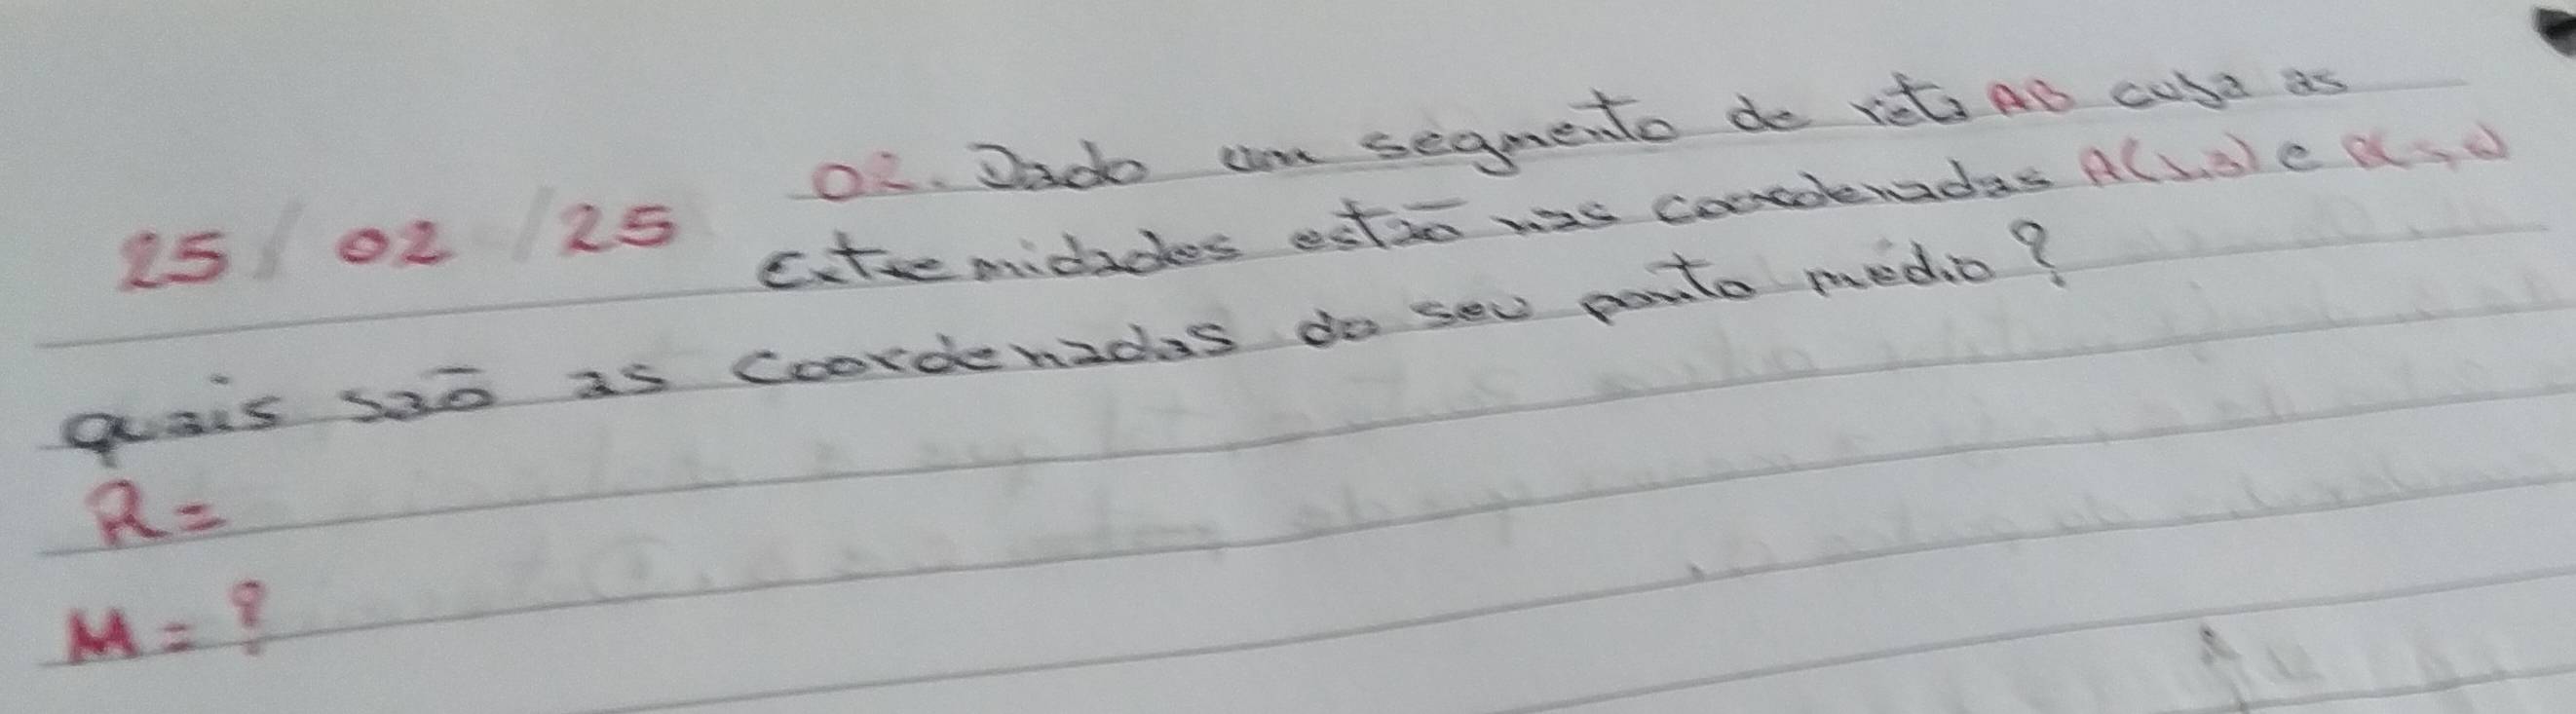 25/02/25
02. Dado um segmento de reta AB cuja as
extremidades estão nas coordenadas e
quais são as coordenadas do seu ponto médio?
R=
M=?